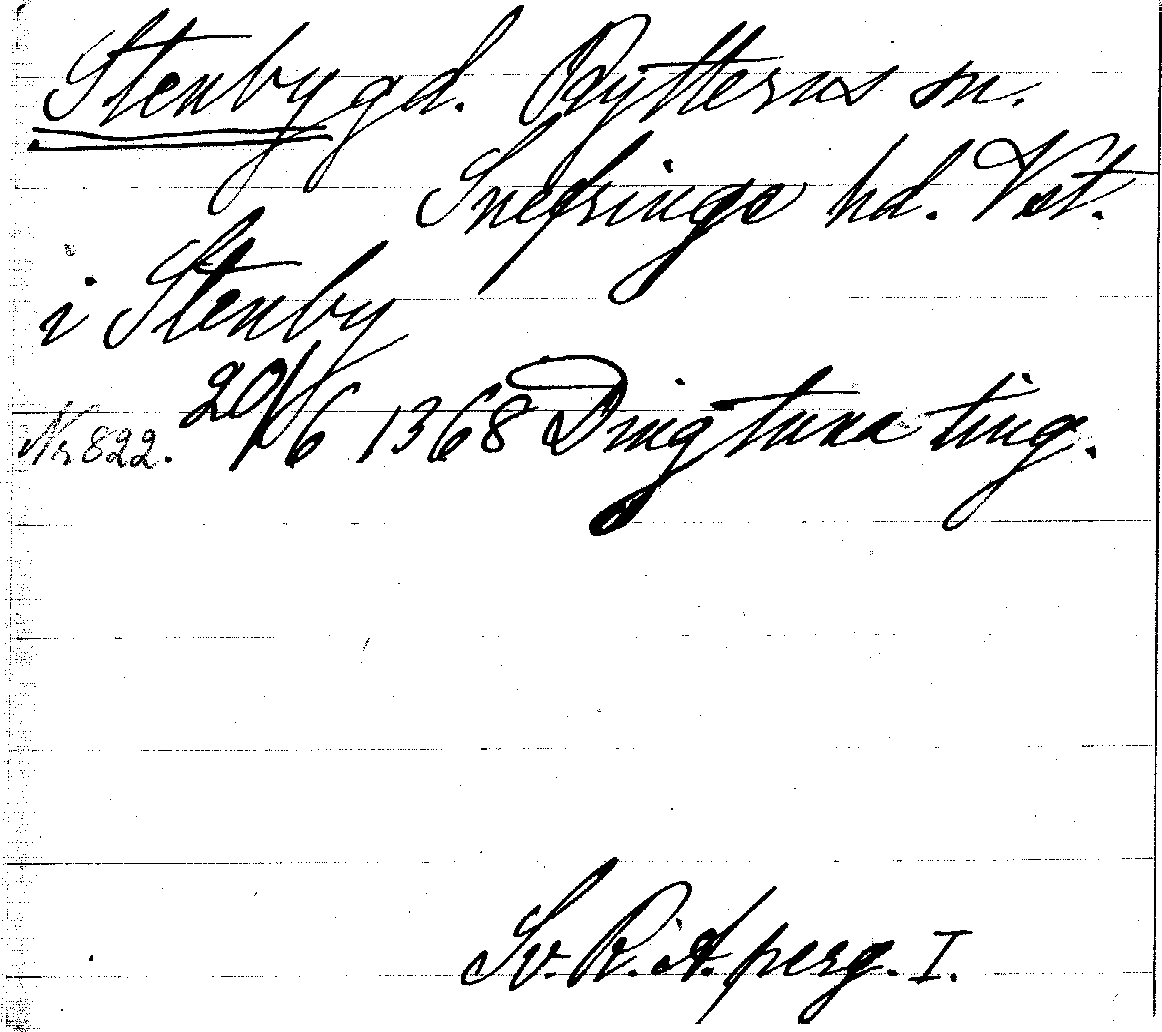 Stenby gd. Rytterns sn.
Snefringe hd. Vst.
i Stenby
Nr 822. 20/6 1368 Dingtuna ting.
Sv. R. A. perg. I.